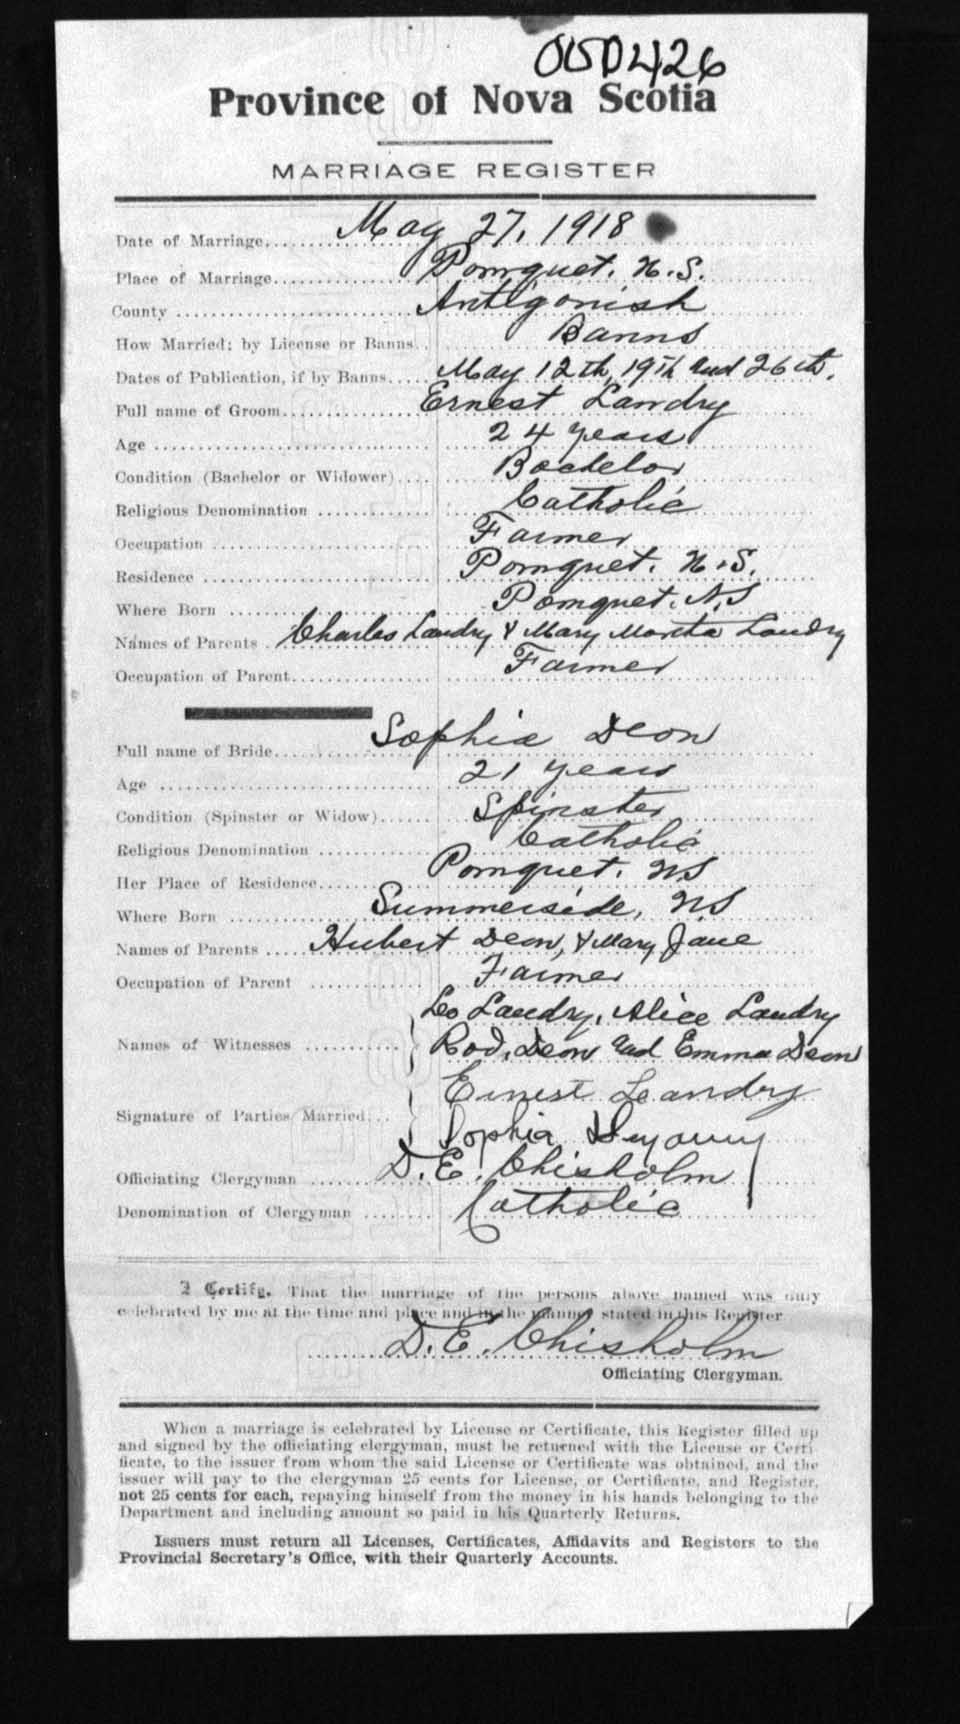 005426
Province of Nova Scotia
MARRIAGE REGISTER
Date of Marriage May 27, 1918
Place of Marriage Pomquet. N.S.
County Antigonish
How Married; by License or Banns Banns
Dates of Publication, if by Banns May 12th, 19th and 26th.
Full name of Groom Ernest Landry
Age 24 years
Condition (Bachelor or Widower) Bachelor
Religious Denomination Catholic
Occupation Farmer
Residence Pomquet. N.S.
Where Born Pomquet. N.S
Names of Parents Charles Landry & Mary Landry
Occupation of Parent Farmer
Full name of Bride Sophia Deon
Age 21 years
Condition (Spinster or Widow) Spinster
Religious Denomination Catholic
Her Place of Residence Pomquet. NS
Where Born Summerside, NS
Names of Parents Hubert Deon, & Mary Jane
Occupation of Parent Farmer
Leo Landry, Alice Landry
Names of Witnesses Rod. Deon and Emma Deon
Ernest Landry
Signature of Parties Married
Sophia Deyoung
Officiating Clergyman D.E. Chisholm
Denomination of Clergyman Catholic
I Certify, That the marriage of the persons above named was duly
celebrated by me at the time and place and in the manner stated in this Register
D.E. Chisholm
Officiating Clergyman.
When a marriage is celebrated by License or Certificate, this Register filled up
and signed by the officiating clergyman, must be returned with the License or Certi
ficate, to the issuer from whom the said License or Certificate was obtained, and the
issuer will pay to the clergyman 25 cents for License, or Certificate, and Register,
not 25 cents for each, repaying himself from the money in his hands belonging to the
Department and including amount so paid in his Quarterly Returns.
Issuers must return all Licenses, Certificates, Affidavits and Registers to the
Provincial Secretary's Office, with their Quarterly Accounts.